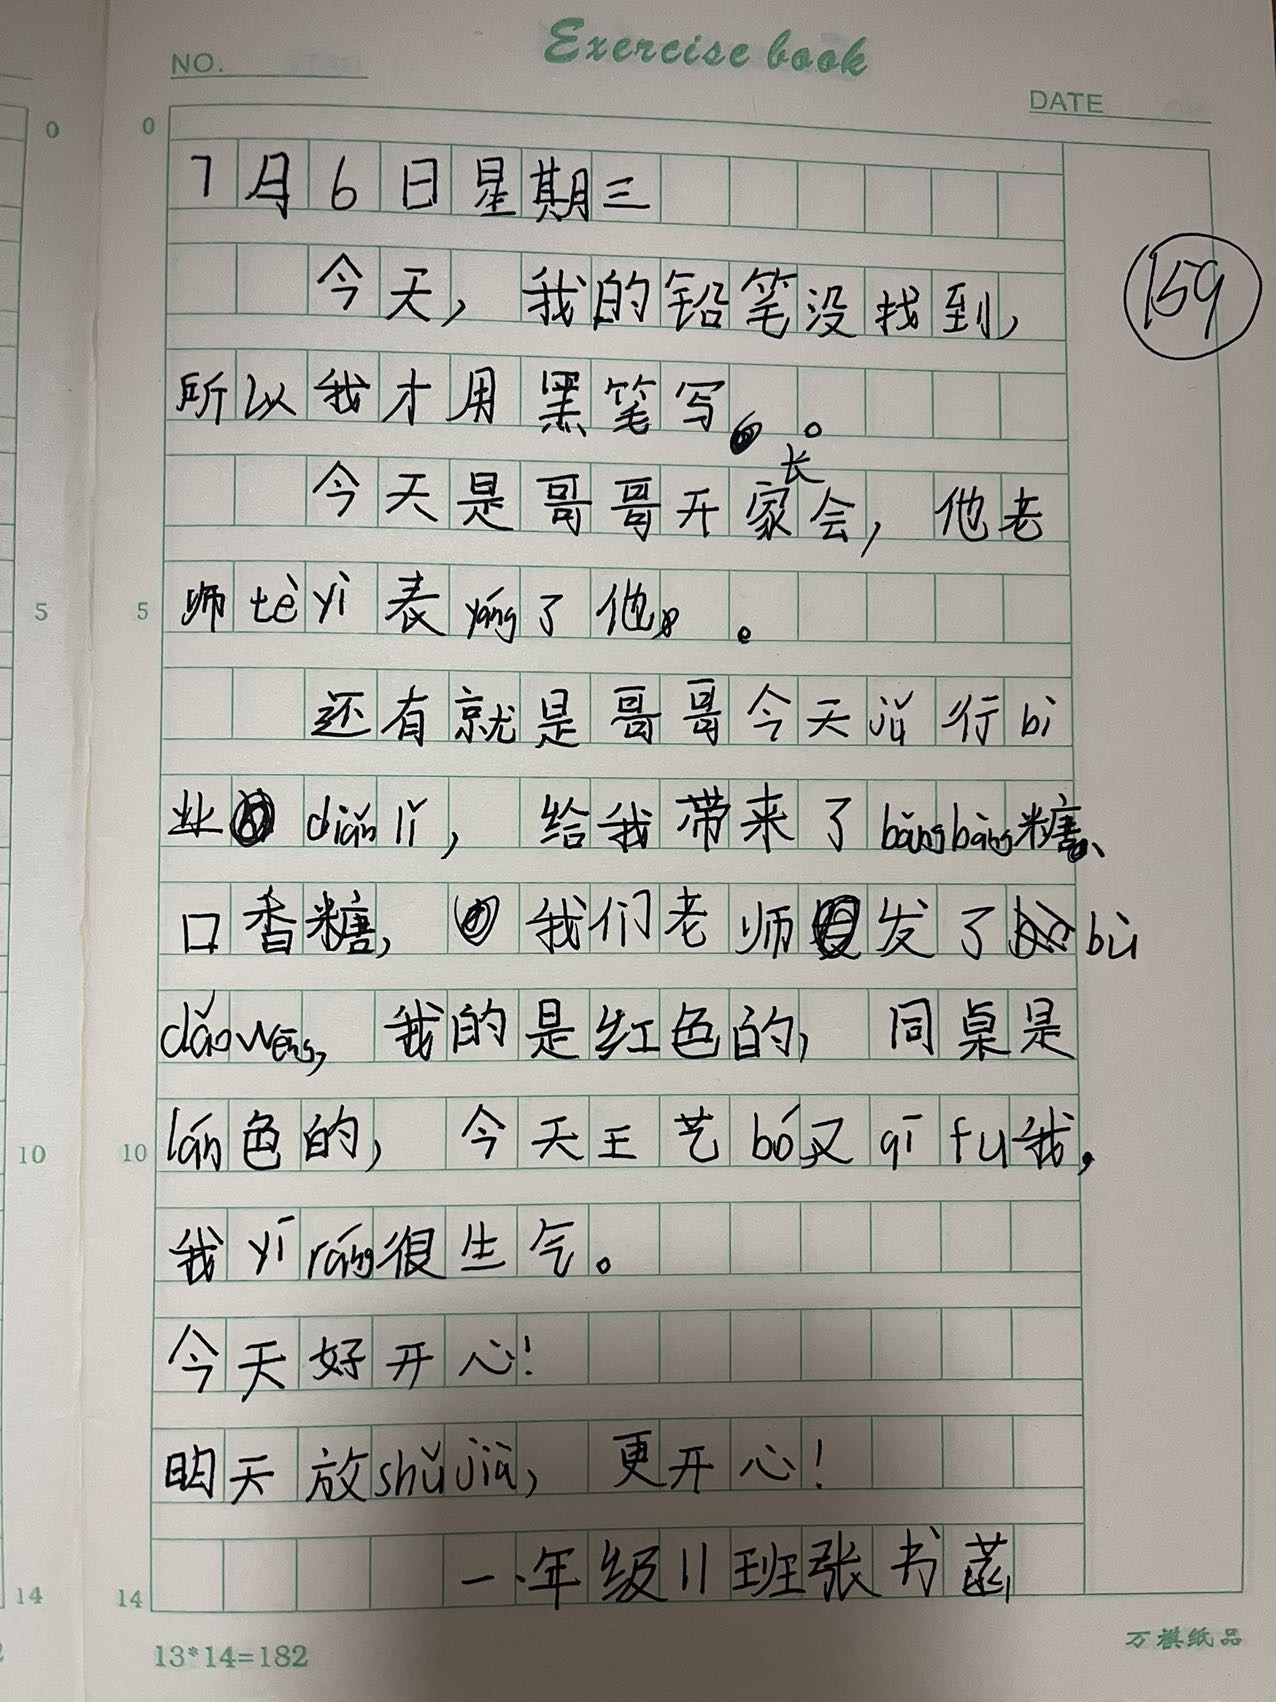 Exercise book
NO.
DATE
0
0
7月6日星期三
159
今天，我的铅笔没找到，
所以我才用黑笔写。
今天是哥哥开家长会，他老
5
5
师tè yì表yáng了他。
还有就是哥哥今天jǔ行bì
业diǎn lǐ，给我带来了bàng bàng糖、
口香糖，我们老师发了bù
dǎo wēng，我的是红色的，同桌是
10
10
lán色的，今天王艺bó又qī fu我，
我yī ráng很生气。
今天好开心！
明天放shǔ jià，更开心！
14
14
一年级11班张书
13*14=182
万祺纸品